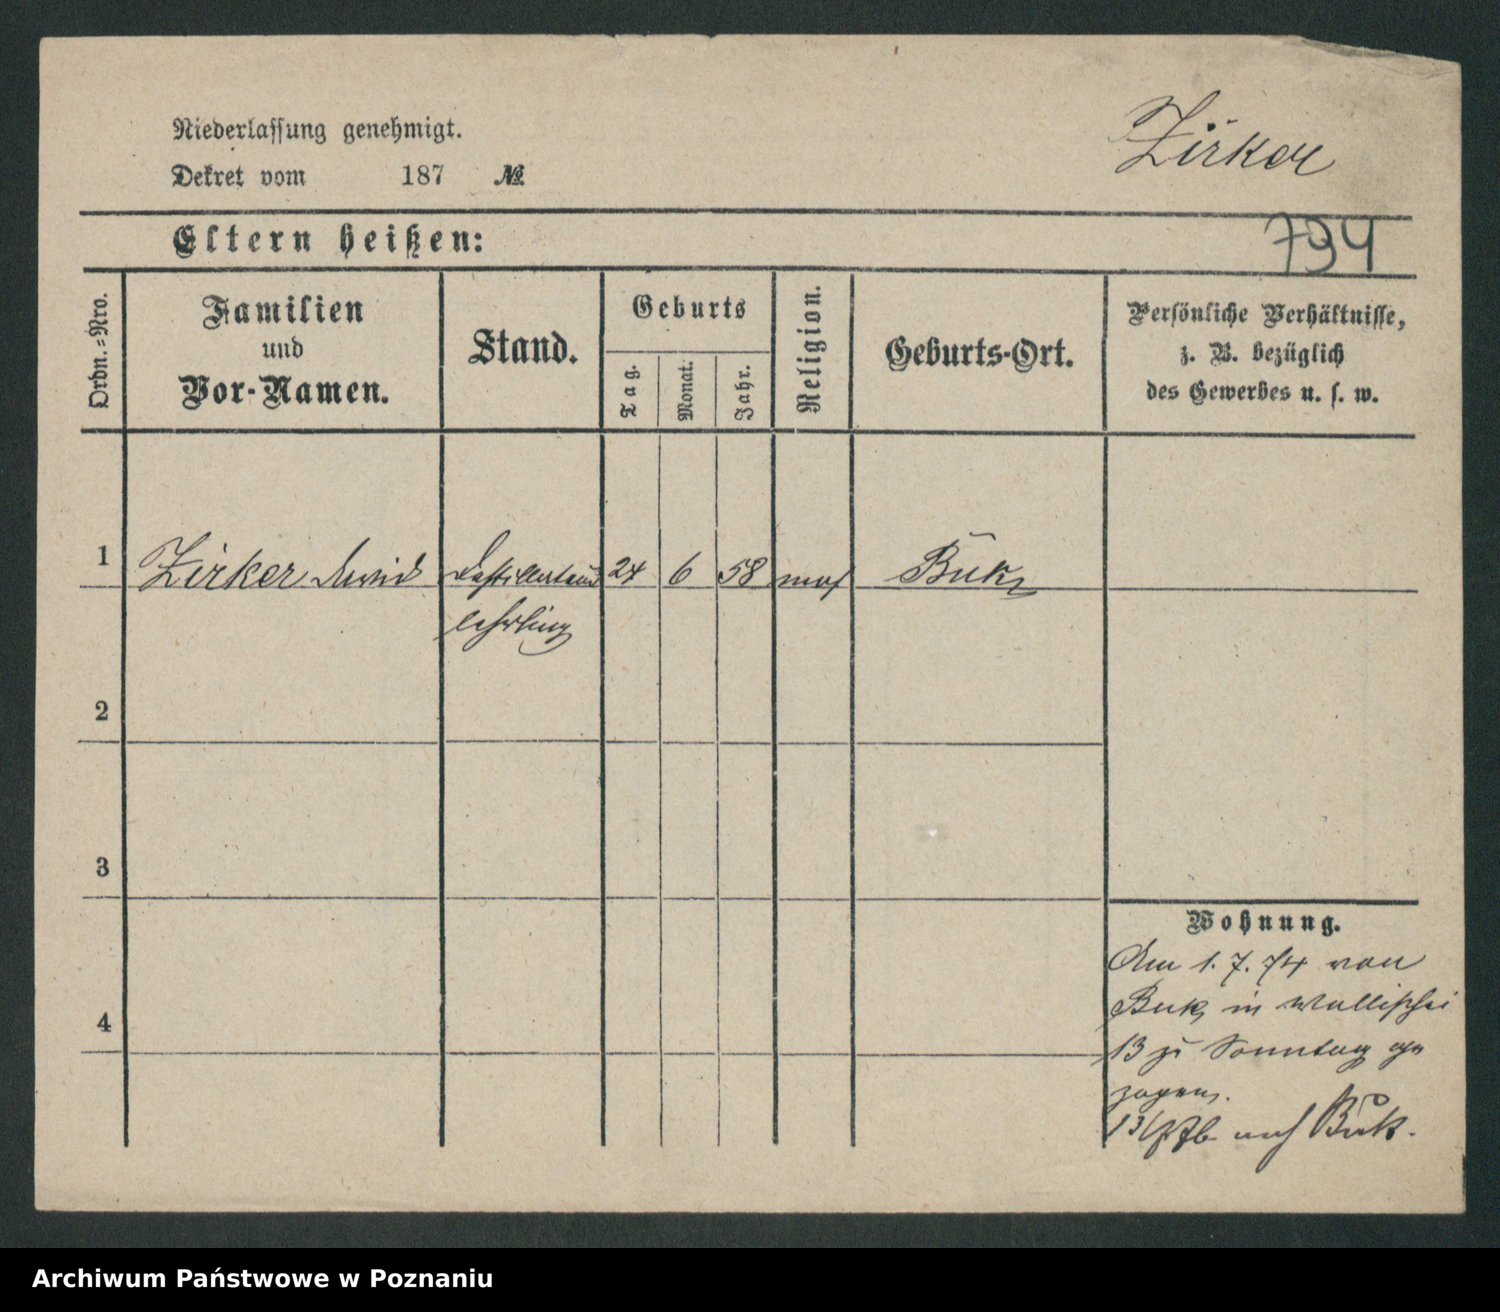 Niederlassung genehmigt.
Zirker
Dekret vom 187 №
Eltern heißen:
794
Ordn.-Nro.
Familien
und
Vor-Namen.
Stand.
Geburts
Tag.
Monat.
Jahr.
Religion.
Geburts-Ort.
Persönliche Verhältnisse,
z. B. bezüglich
des Gewerbes u. s. w.
1 Zirker David Destillateur 24 6 58 mos Buk
lehrling
2
3
Wohnung.
Am 1. 7. 74 von
Buk in Wallischei
4
13 zu Sonntag ge
zogen.
nach Buk.
Archiwum Państwowe w Poznaniu